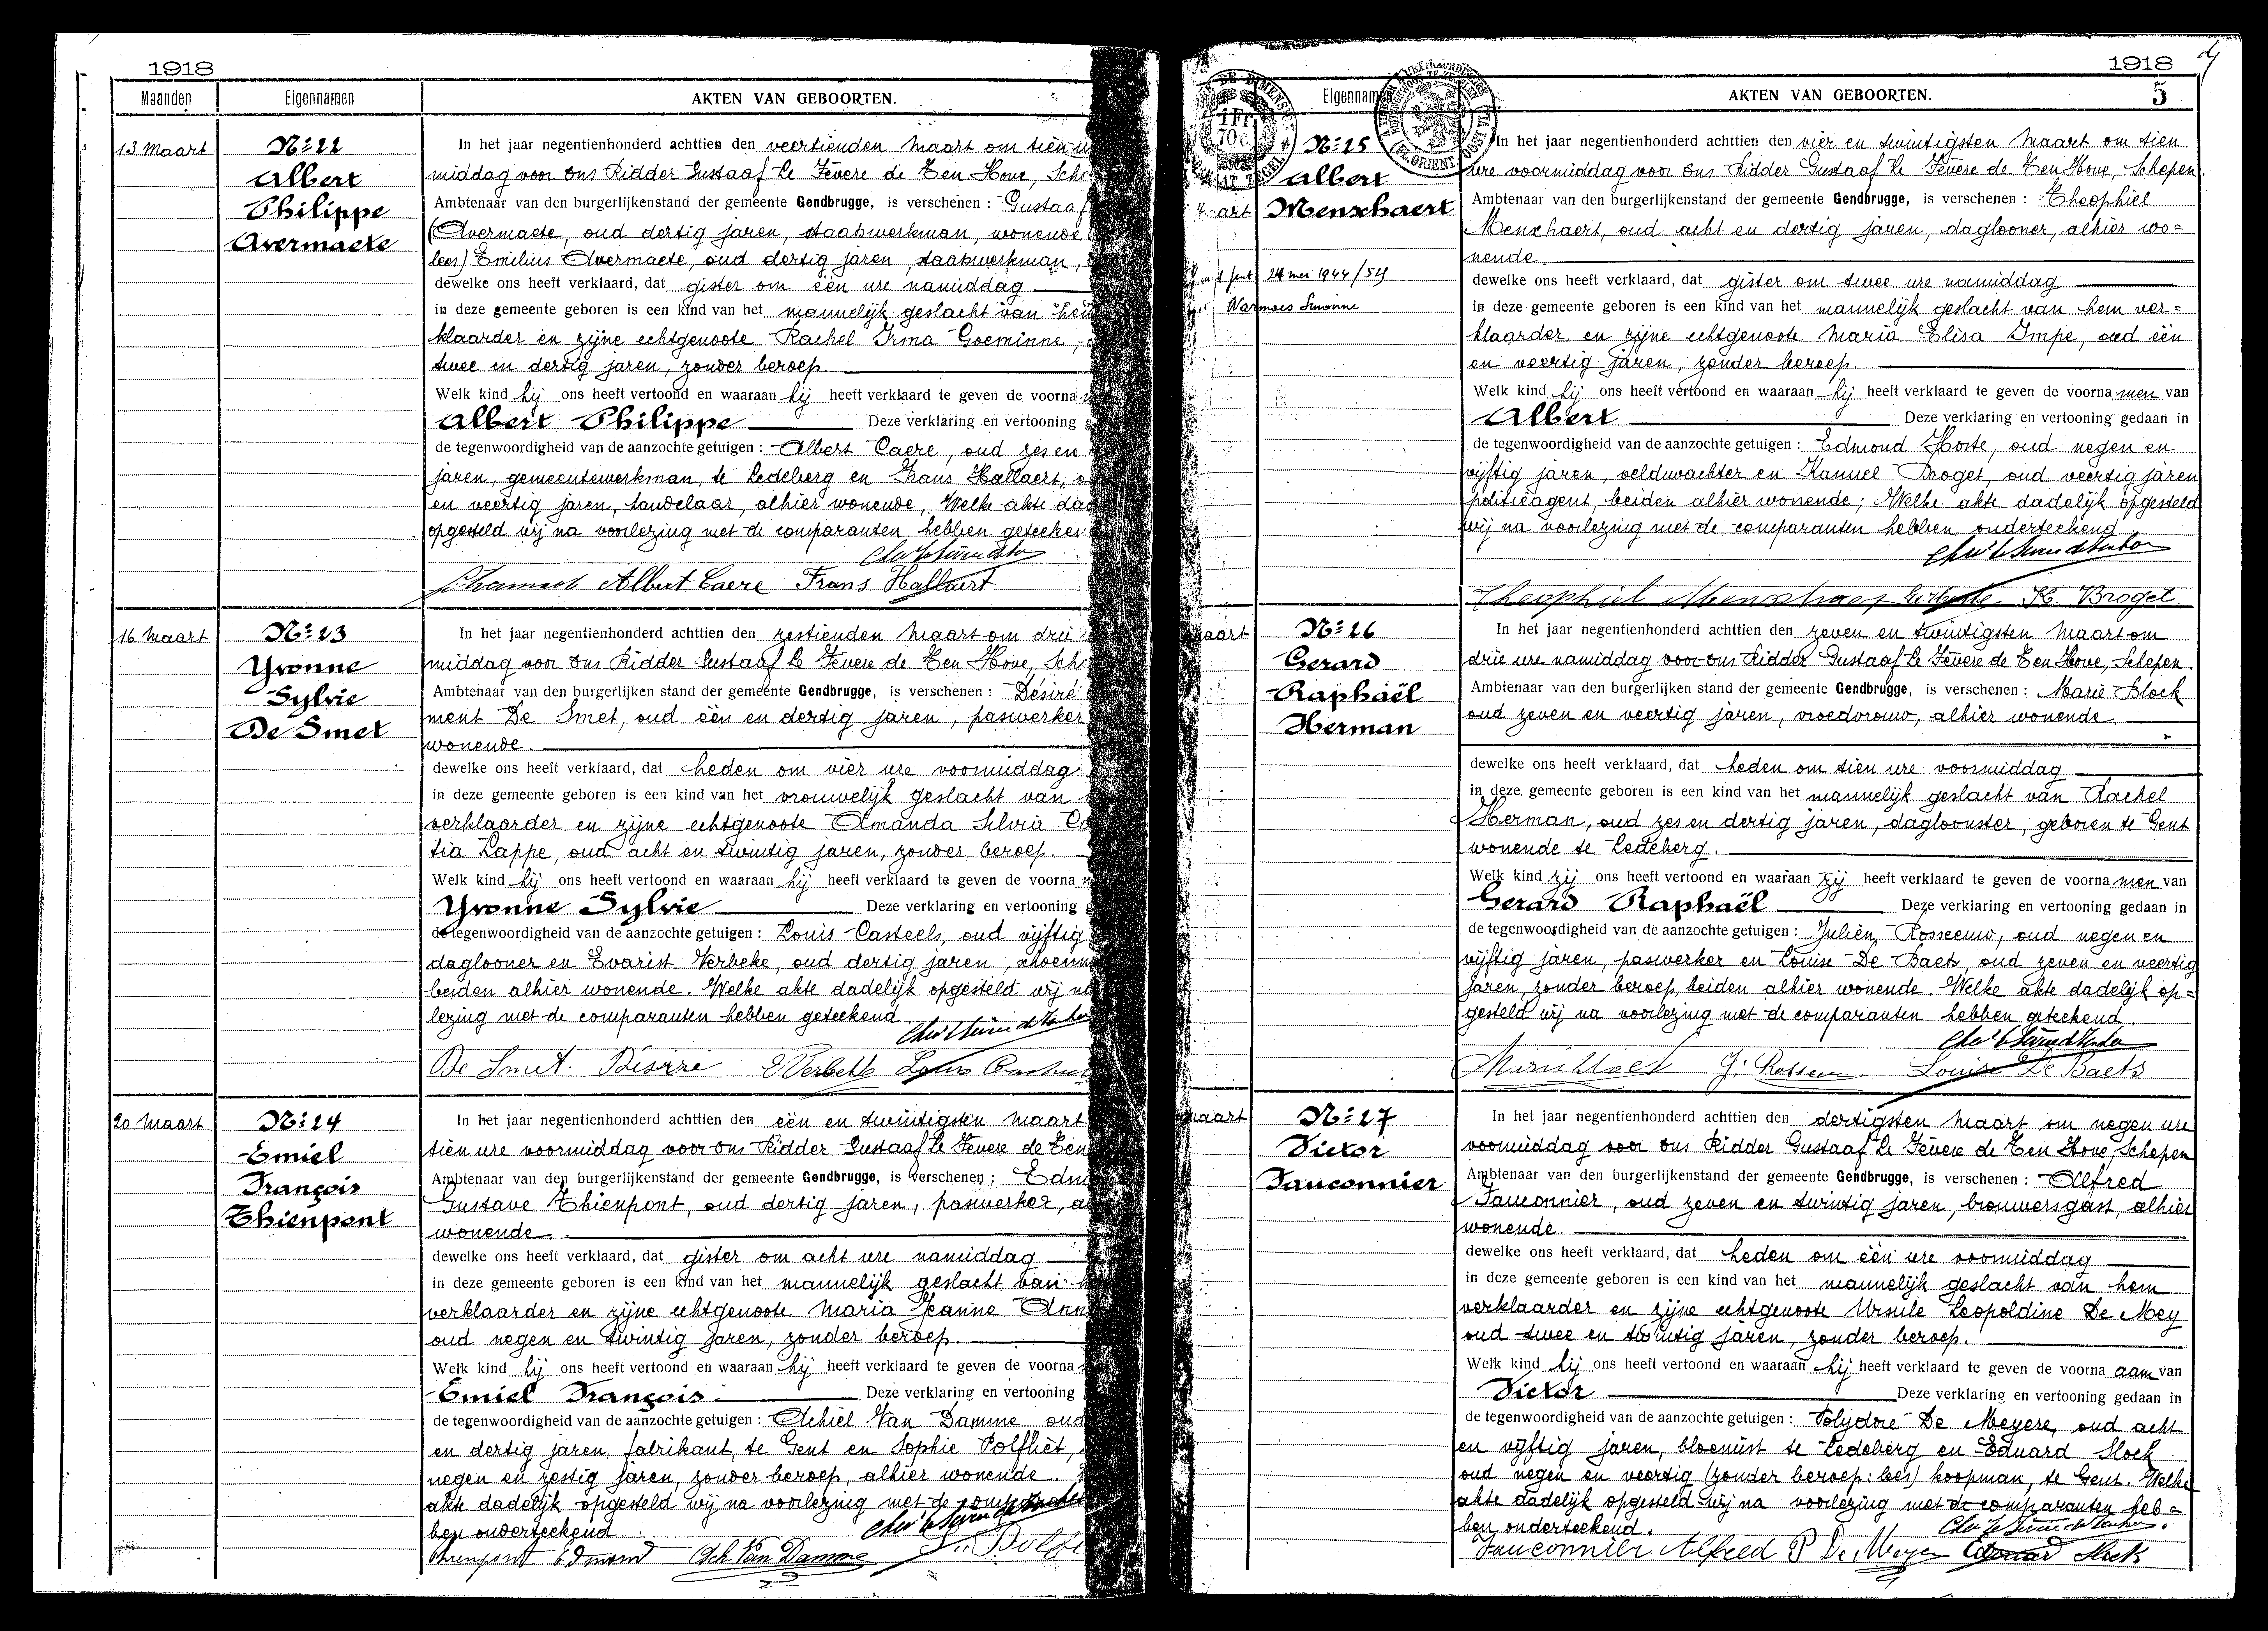 1918
Maanden
Eigennamen
AKTEN VAN GEBOORTEN.
13 Maart
N:22
Albert
Philippe
Avermaete
In het jaar negentienhonderd achttien den veertienden Maart om tien
middag voor Ons Ridder Gustaaf Le Fèvere de Ten Hove,
Ambtenaar van den burgerlijkenstand der gemeente Gendbrugge, is verschenen : Gustaaf
(Avermaete, oud dertig jaren, staatswerkman, wonende
lees) Emilius Avermaete, oud dertig jaren, staatswerkman,
dewelke ons heeft verklaard, dat gister om één ure namiddag
in deze gemeente geboren is een kind van het mannelijk geslacht van hem
klaarder en zijne echtgenoote Rachel Irma Goeminne,
twee en dertig jaren, zonder beroep.
Welk kind hij ons heeft vertoond en waaraan hij heeft verklaard te geven de voorna
Albert Philippe Deze verklaring en vertooning
de tegenwoordigheid van de aanzochte getuigen : Albert Caere, oud zes en
jaren, gemeentewerkman, te Ledeberg en Frans Hallaert,
en veertig jaren, handelaar, alhier wonende. Welke akte
opgesteld wij na voorlezing met de comparanten hebben
Albert Caere Frans Hallaert
16 Maart
N:23
Yvonne
Sylvie
De Smet
In het jaar negentienhonderd achttien den zestienden Maart om drie
middag voor Ons Ridder Gustaaf Le Fèvere de Ten Hove,
Ambtenaar van den burgerlijken stand der gemeente Gendbrugge, is verschenen : Désiré
ment De Smet, oud één en dertig jaren, paswerker
wonende.
dewelke ons heeft verklaard, dat heden om vier ure voormiddag
in deze gemeente geboren is een kind van het vrouwelijk geslacht van
verklaarder en zijne echtgenoote Amanda Silvia
tia Lappe, oud acht en twintig jaren, zonder beroep.
Welk kind hij ons heeft vertoond en waaraan hij heeft verklaard te geven de voorna
Yvonne Sylvie Deze verklaring en vertooning
de tegenwoordigheid van de aanzochte getuigen : Louis Casteels, oud vijftig
daglooner en Evarist Verbeke, oud dertig jaren,
beiden alhier wonende. Welke akte dadelijk opgesteld wij
lezing met de comparanten hebben geteekend
De Smet. Désiré E. Verbeke Louis
20 Maart
N:24
Emiel
François
Thienpont
In het jaar negentienhonderd achttien den één en twintigsten Maart
tien ure voormiddag voor Ons Ridder Gustaaf Le Fèvere de Ten
Ambtenaar van den burgerlijkenstand der gemeente Gendbrugge, is verschenen :
Gustave Thienpont, oud dertig jaren, paswerker,
wonende.
dewelke ons heeft verklaard, dat gister om acht ure namiddag
in deze gemeente geboren is een kind van het mannelijk geslacht van
verklaarder en zijne echtgenoote Maria Jeanne
oud negen en twintig jaren, zonder beroep.
Welk kind hij ons heeft vertoond en waaraan hij heeft verklaard te geven de voorna
Emiel François Deze verklaring en vertooning
de tegenwoordigheid van de aanzochte getuigen : Achiel Van Damme oud
en dertig jaren, fabrikant, te Gent en Sophie Polfliet,
negen en zestig jaren, zonder beroep, alhier wonende.
akte dadelijk opgesteld wij na voorlezing met de
ben onderteekend.
Edmond Ach Van Damme
1918
5
Eigennamen
AKTEN VAN GEBOORTEN.
N:25
Albert
Menschaert
24 mei 1944/54
Warmoes Simonne
In het jaar negentienhonderd achttien den vier en twintigsten Maart om tien
ure voormiddag voor Ons Ridder Gustaaf Le Fèvere de Ten Hove, Schepen
Ambtenaar van den burgerlijkenstand der gemeente Gendbrugge, is verschenen : Theophiel
Menschaert, oud acht en dertig jaren, daglooner, alhier wo=
nende.
dewelke ons heeft verklaard, dat gister om twee ure namiddag
in deze gemeente geboren is een kind van het mannelijk geslacht van hem ver=
klaarder en zijne echtgenoote Maria Elisa Impe, oud één
en veertig jaren, zonder beroep.
Welk kind hij ons heeft vertoond en waaraan hij heeft verklaard te geven de voornamen van
Albert Deze verklaring en vertooning gedaan in
de tegenwoordigheid van de aanzochte getuigen : Edmond Hoste, oud negen en
vijftig jaren, veldwachter en Kamiel Broget, oud veertig jaren
politieagent, beiden alhier wonende; Welke akte dadelijk opgesteld
wij na voorlezing met de comparanten hebben onderteekend
Theophiel K. Broget.
Maart
N:26
Gerard
Raphaël
Herman
In het jaar negentienhonderd achttien den zeven en twintigsten Maart om
drie ure namiddag voor Ons Ridder Gustaaf Le Fèvere de Ten Hove, Schepen
Ambtenaar van den burgerlijken stand der gemeente Gendbrugge, is verschenen : Marie Block
oud zeven en veertig jaren, vroedvrouw, alhier wonende.
dewelke ons heeft verklaard, dat heden om tien ure voormiddag
in deze gemeente geboren is een kind van het mannelijk geslacht van Rachel
Herman, oud zes en dertig jaren, dagloonster, geboren te Gent
wonende te Ledeberg.
Welk kind zij ons heeft vertoond en waaraan zij heeft verklaard te geven de voornamen van
Gerard Raphaël Deze verklaring en vertooning gedaan in
de tegenwoordigheid van de aanzochte getuigen : Julien Rosseeuw, oud negen en
vijftig jaren, paswerker en Louise De Baets, oud zeven en veertig
jaren, zonder beroep, beiden alhier wonende. Welke akte dadelijk op=
gesteld wij na voorlezing met de comparanten hebben geteekend.
Louise De Baets
Maart
N:27
Victor
Fauconnier
In het jaar negentienhonderd achttien den dertigsten Maart om negen ure
voormiddag voor Ons Ridder Gustaaf Le Fèvere de Ten Hove, Schepen
Ambtenaar van den burgerlijkenstand der gemeente Gendbrugge, is verschenen : Alfred
Fauconnier, oud zeven en twintig jaren, brouwersgast, alhier
wonende.
dewelke ons heeft verklaard, dat heden om één ure voormiddag
in deze gemeente geboren is een kind van het mannelijk geslacht van hem
verklaarder en zijne echtgenoote Ursule Leopoldine De Mey
oud twee en twintig jaren, zonder beroep.
Welk kind hij ons heeft vertoond en waaraan hij heeft verklaard te geven de voornaam van
Victor Deze verklaring en vertooning gedaan in
de tegenwoordigheid van de aanzochte getuigen : Polydore De Meyere, oud acht
en vijftig jaren, bloemist te Ledeberg en Eduard Slock
oud negen en veertig (zonder beroep: lees) koopman, te Gent. Welke
akte dadelijk opgesteld wij na voorlezing met de comparanten heb=
ben onderteekend.
Fauconnier Alfred P De Meyer